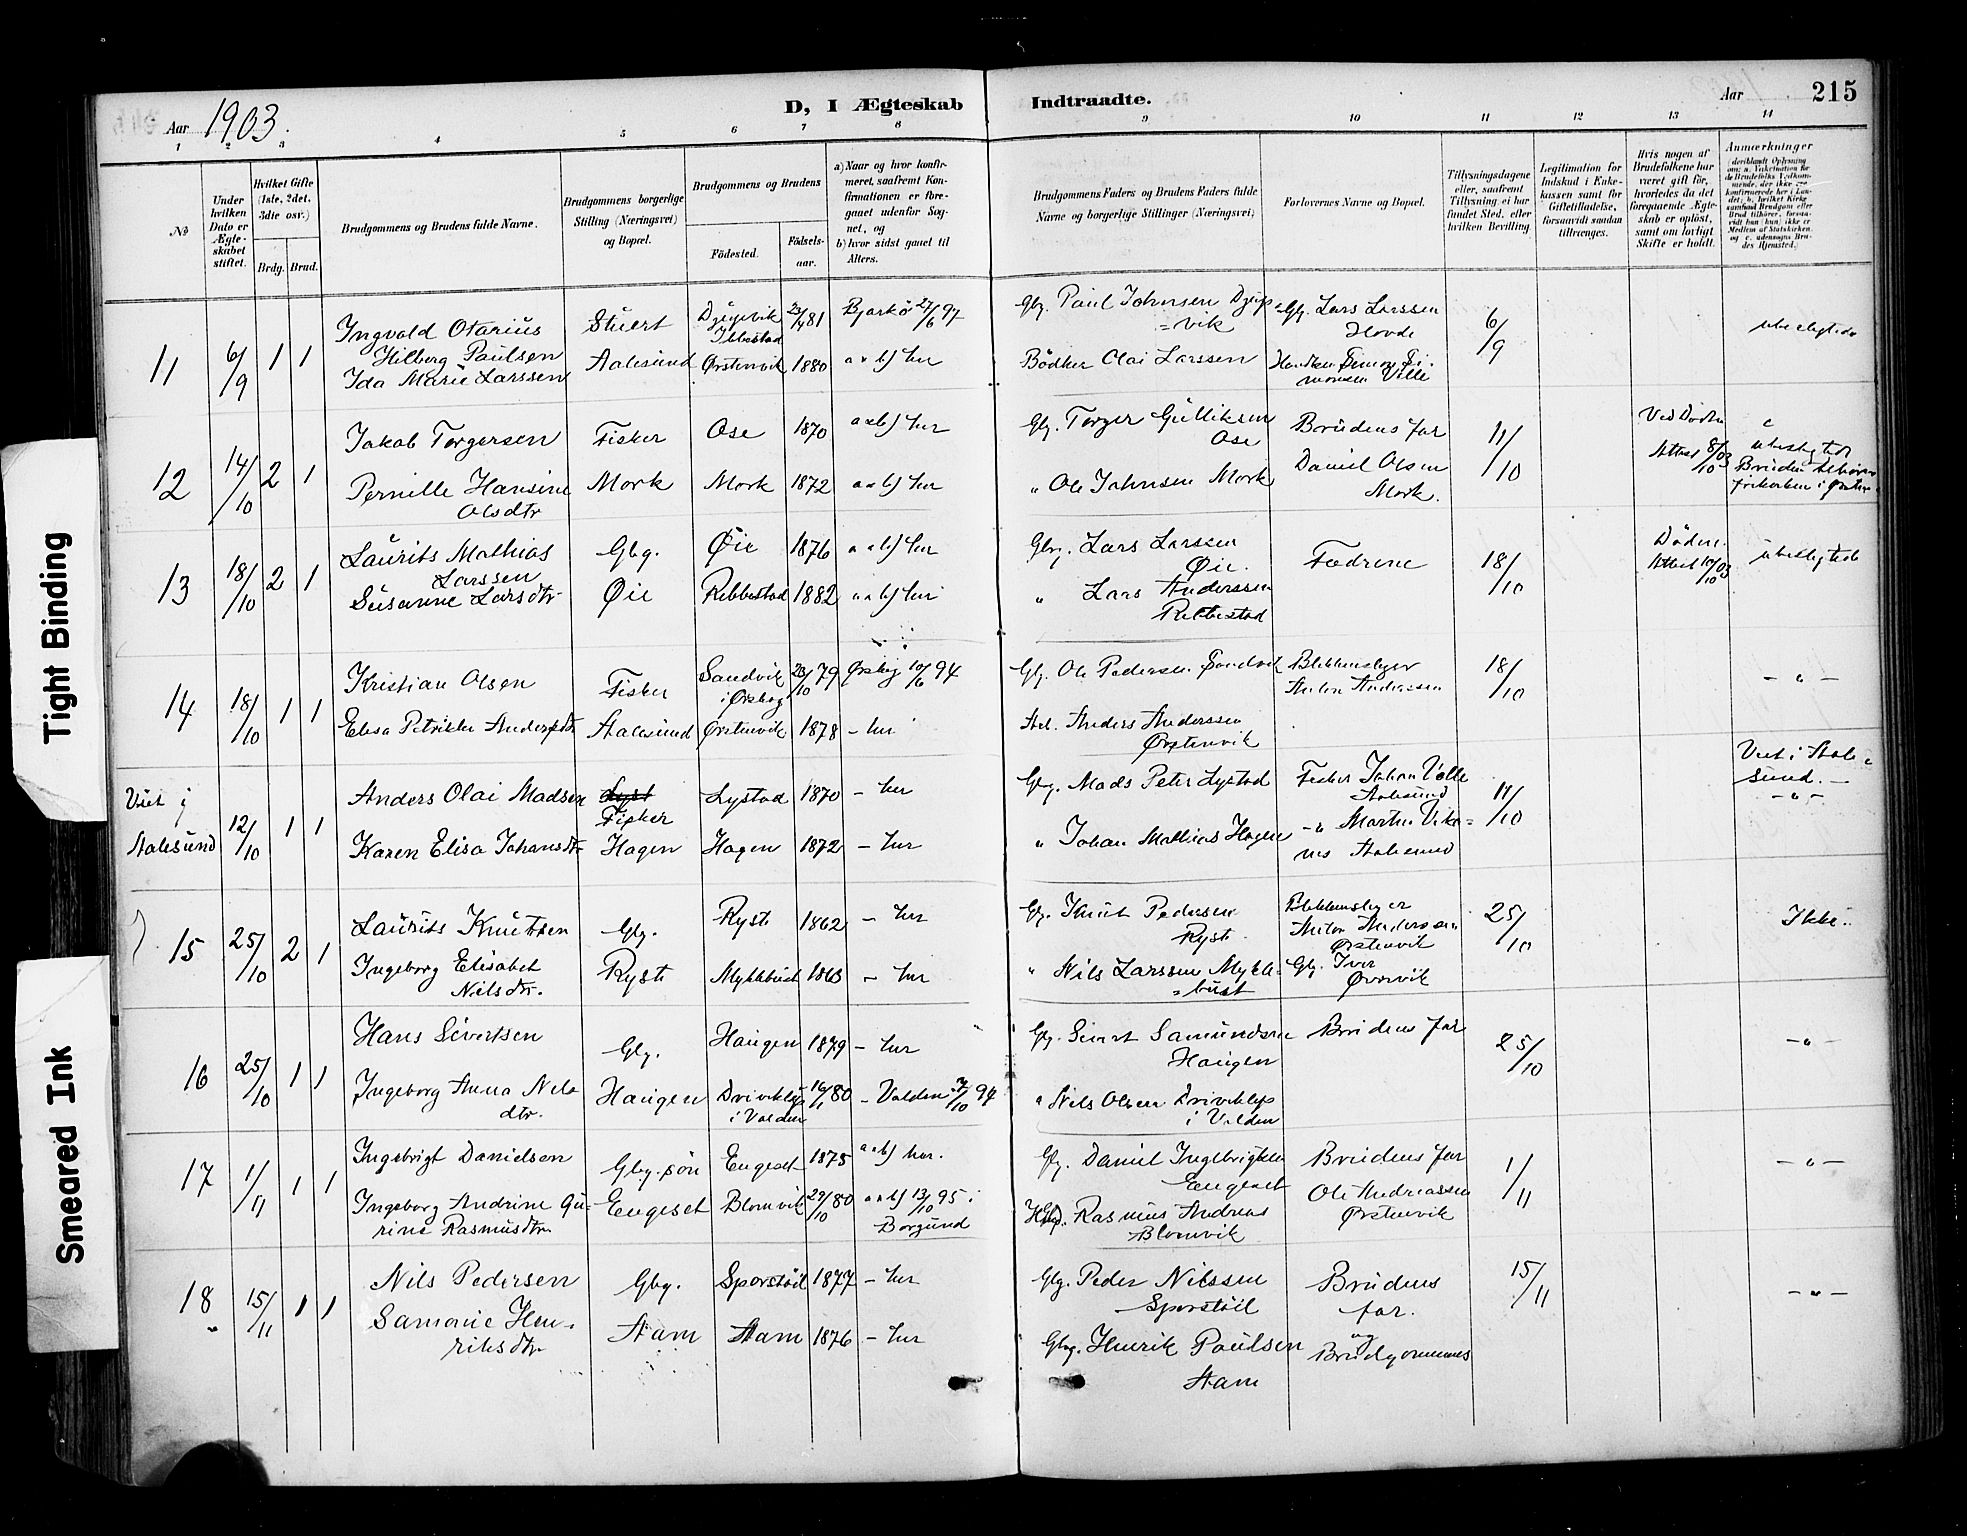 Tight Binding
Smeared Ink
Aar 1903.
D, I Ægteskab Indtraadte.
Aar
215
1 2 3 4 5 6 7 8 9 10 11 12 13 14
No
Under hvilken Dato er Ægteskabet stiftet.
Hvilket Gifte (1ste, 2det, 3die osv.)
Brdg. Brud.
Brudgommens og Brudens fulde Navne.
Brudgommens borgerlige Stilling (Næringsvei) og Bopæl.
Brudgommens og Brudens
Födested. Födselsaar.
a) Naar og hvor konfirmeret, saafremt Konfirmationen er foregaaet udenfor Sognet, og
b) hvor sidst gaaet til Alters.
Brudgommens Faders og Brudens Faders fulde Navne og borgerlige Stillinger (Næringsvei)
Forlovernes Navne og Bopæl.
Tillysningsdagene eller, saafremt Tillysning ei har fundet Sted, efter hvilken Bevilling.
Legitimation for Indskud i Enkekassen samt for Giftetilladelse, forsaavidt saadan tiltrænges.
Hvis nogen af Brudefolkene har været gift för, hvorledes da det foregaaende Ægteskab er oplöst, samt om lovligt Skifte er holdt.
Anmerkninger
11 6/9 1 1 Ingvald Otarius Hilberg Paulsen Stuert Djupvik Ibbestad 23/4 81 Bjarkö 27/6 97 Gbg. Paul Johnsen Djup=vik Gbg. Lars Larssen Hovde 6/9 ubeslegtede
Ida Marie Larssen Aalesund Ørstenvik 1880 a & b) her Bödker Olai Larssen
12 14/10 2 1 Jakob Torgersen Fisker Ose 1870 a & b) her Gbg. Torger Gulliksen Ose Brudens far 11/10 Ved Döden Attest 8/10 03 ubeslegtede
Pernille Hansine Olsdtr Mork Mork 1872 a & b) her " Ole Johnsen Mork Daniel Olsen Mork.
13 18/10 2 1 Laurits Mathias Larssen Gbg. Øie 1876 a & b) her Gbg. Lars Larssen Øie. Fædrene 18/10 Döden. Attest 10/10 03 ubeslegtede
Susanne Larsdtr Øie Rebbestad 1882 a & b) her " Lars Anderssen Rebbestad
14 18/10 1 1 Kristian Olsen Fisker Sandvik i Ørskog 23/10 79 Ørskog 10/6 94 Gbg. Ole Pedersen Sandvik Blikkenslager Anton Anderssen 18/10 - " -
Elisa Petrikke Andersdtr Aalesund Ørstenvik 1878 - her Anders Anderssen Ørstenvik
Viet i Aalesund 12/10 1 1 Anders Olai Madsen Fisker Lystad 1870 - her Gbg. Mads Peter Lystad Fisker Johan Volle Aalesund 11/10 Viet i Aalesund. - " -
Karen Elisa Johansdtr Hagen Hagen 1872 - her " Johan Mathias Hagen - " Martin Vike=nes Aalesund
15 25/10 2 1 Laurits Knutsen Gbg. Ryste 1862 - her Gbg. Knut Pedersen Ryste Blikkenslager Anton Anderssen Ørstenvik 25/10 Ikke.
Ingeborg Elisabet Nilsdtr. Ryste Myklebust 1863 - her " Nils Larssen Mykle=bust Gbg. Iver Øvrevik
16 25/10 1 1 Hans Sivertsen Gbg. Haugen 1879 - her Gbg. Sivert Samundsen Haugen Brudens far 25/10 - " -
Ingeborg Anna Nilsdtr. Haugen i Volden 16/1 80 - Volden 94 " Nils Olsen i Volden
17 1/11 1 1 Ingebrigt Danielsen Gbg. sön Engeset 1875 a & b) her. Gbg. Daniel Ingebrigtsen Engeset Brudens far 1/11 - " -
Ingeborg Andrine Gurine Rasmusdtr Engeset Blomvik 29/10 80 a & b) 13/10 95 i Borgund Rasmus Andreas Blomvik Ole Andreassen Ørstenvik
18 15/11 1 1 Nils Pedersen Gbg. Sporstöil 1877 - her Gbg. Peder Nilssen Sporstöil Brudens far. 15/11 - " -
Samonie Henriksdtr Aam Aam 1876 - her Gbg. Henrik Paulsen Aam og Brudgommens